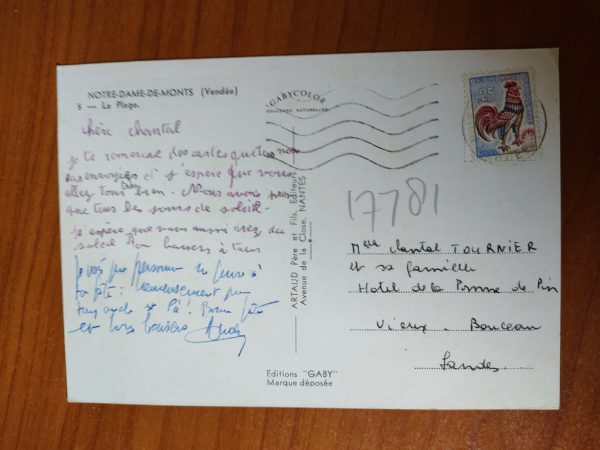 NOTRE-DAME-DE-MONTS (Vendée)
S — La Plage.
chère chantal
je te remercie des cartes que tu nous
as envoyées et j'espère que vous
allez tous bien. Nous avons pres
que tous les jours du soleil.
je espère que vous aussi avez du
soleil Bon baisers à tous
personne ne pense à
ta fête : heureusement
est là ! Bonne fête
et bons baisers
"GABYCOLOR"
COULEURS NATURELLES
ARTAUD Père et Fils, Editeurs
Avenue de la Close, NANTES
Editions "GABY"
Marque déposée
0,25
17781
Mlle Chantal TOURNIER
et sa famille
Hotel de la Pomme de Pin
Vieux-Boucau
Landes